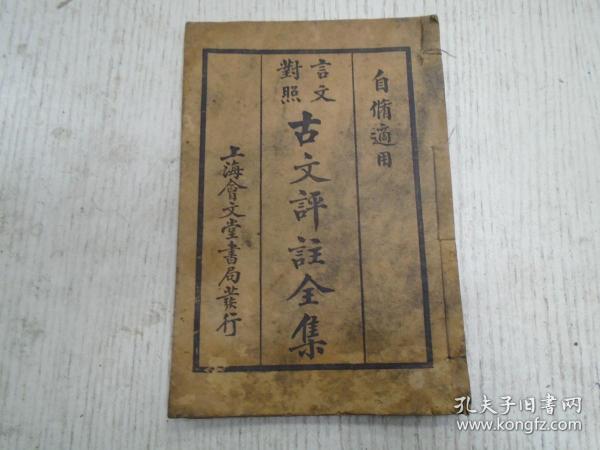 自脩適用
言文
對照
古文評註全集
上海會文堂書局發行
孔夫子旧书网
www.kongfz.com